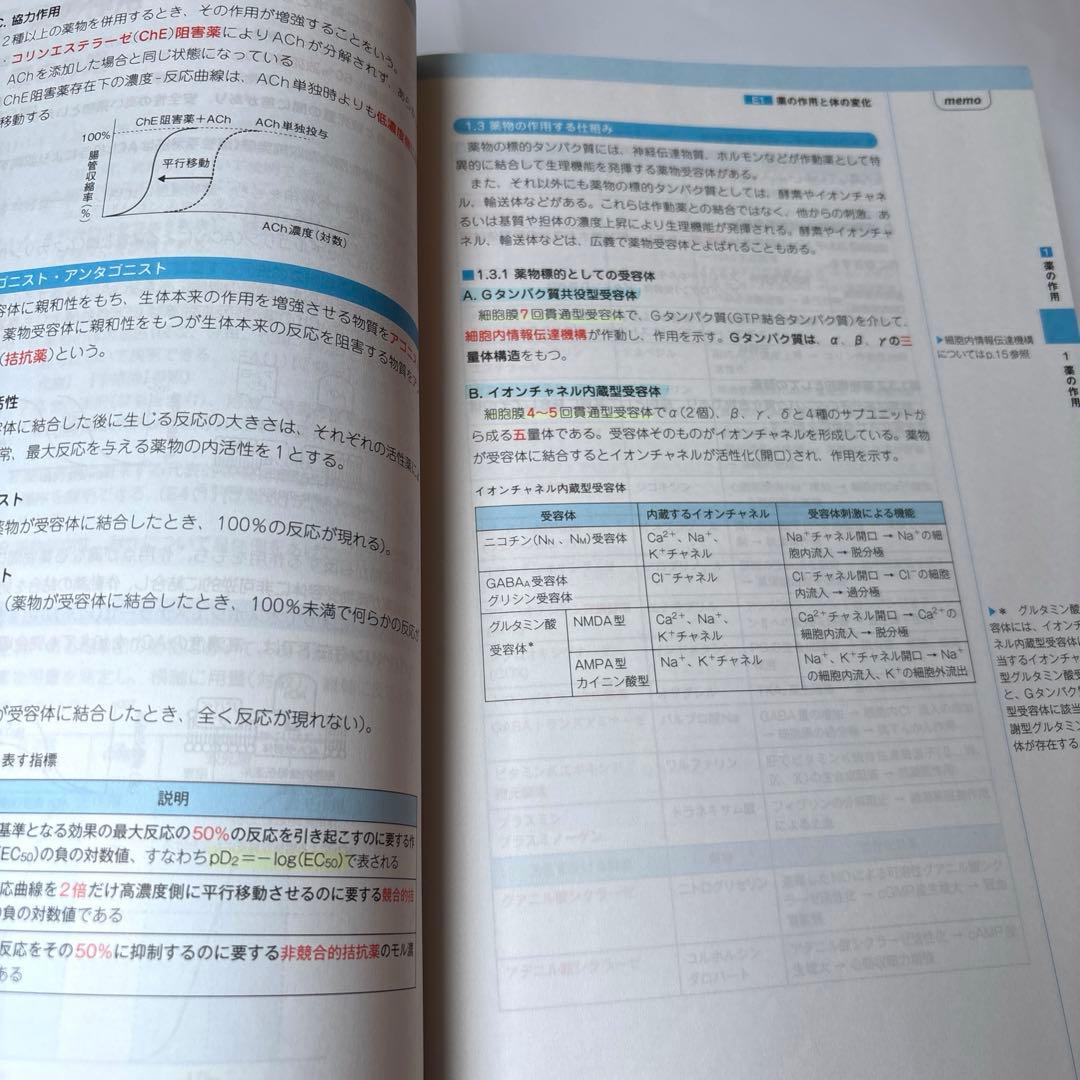 C. 協力作用
2種以上の薬物を併用するとき、その作用が増強することをいう。
・コリンエステラーゼ(ChE)阻害薬によりAChが分解されず、
AChを添加した場合と同じ状態になっている
ChE阻害薬存在下の濃度-反応曲線は、ACh単独時よりも低濃度側
移動する
100%
ChE阻害薬+ACh
ACh単独投与
平行移動
腸管収縮率(%)
ACh濃度(対数)
ゴニスト・アンタゴニスト
容体に親和性をもち、生体本来の作用を増強させる物質をアゴニ
薬物受容体に親和性をもつが生体本来の反応を阻害する物質を
(拮抗薬)という。
活性
容体に結合した後に生じる反応の大きさは、それぞれの活性薬
常、最大反応を与える薬物の内活性を1とする。
スト
薬物が受容体に結合したとき、100%の反応が現れる)。
ト
(薬物が受容体に結合したとき、100%未満で何らかの反応が
が受容体に結合したとき、全く反応が現れない)。
表す指標
説明
基準となる効果の最大反応の50%の反応を引き起こすのに要する作
(EC50)の負の対数値、すなわちpD2=-log(EC50)で表される
応曲線を2倍だけ高濃度側に平行移動させるのに要する競合的拮
の負の対数値である
反応をその50%に抑制するのに要する非競合的拮抗薬のモル濃
ある
E1 薬の作用と体の変化
memo
1.3 薬物の作用する仕組み
薬物の標的タンパク質には、神経伝達物質、ホルモンなどが作動薬として特
異的に結合して生理機能を発揮する薬物受容体がある。
また、それ以外にも薬物の標的タンパク質としては、酵素やイオンチャネ
ル、輸送体などがある。これらは作動薬との結合ではなく、他からの刺激、あ
るいは基質や担体の濃度上昇により生理機能が発揮される。酵素やイオンチャ
ネル、輸送体などは、広義で薬物受容体とよばれることもある。
■1.3.1 薬物標的としての受容体
A. Gタンパク質共役型受容体
細胞膜7回貫通型受容体で、Gタンパク質(GTP結合タンパク質)を介して、
細胞内情報伝達機構が作動し、作用を示す。Gタンパク質は、α、β、γの三
量体構造をもつ。
▶細胞内情報伝達機構
についてはp.15参照
B. イオンチャネル内蔵型受容体
細胞膜4〜5回貫通型受容体でα(2個)、β、γ、δと4種のサブユニットか
ら成る五量体である。受容体そのものがイオンチャネルを形成している。薬物
が受容体に結合するとイオンチャネルが活性化(開口)され、作用を示す。
イオンチャネル内蔵型受容体
受容体 内蔵するイオンチャネル 受容体刺激による機能
ニコチン(NN、NM)受容体 Ca²⁺、Na⁺、 Na⁺チャネル開口 → Na⁺の細
K⁺チャネル 胞内流入 → 脱分極
GABAA受容体 Cl⁻チャネル Cl⁻チャネル開口 → Cl⁻の細胞
グリシン受容体 内流入 → 過分極
グルタミン酸 NMDA型 Ca²⁺、Na⁺、 Ca²⁺チャネル開口 → Ca²⁺の
受容体* K⁺チャネル 細胞内流入 → 脱分極
AMPA型 Na⁺、K⁺チャネル Na⁺、K⁺チャネル開口 → Na⁺
カイニン酸型 の細胞内流入、K⁺の細胞外流出
▶* グルタミン酸
容体には、イオンチ
ネル内蔵型受容体に
当するイオンチャ
型グルタミン酸受
と、Gタンパク
型受容体に該当
謝型グルタミン
体が存在する
1
薬の作用
1
薬の作用